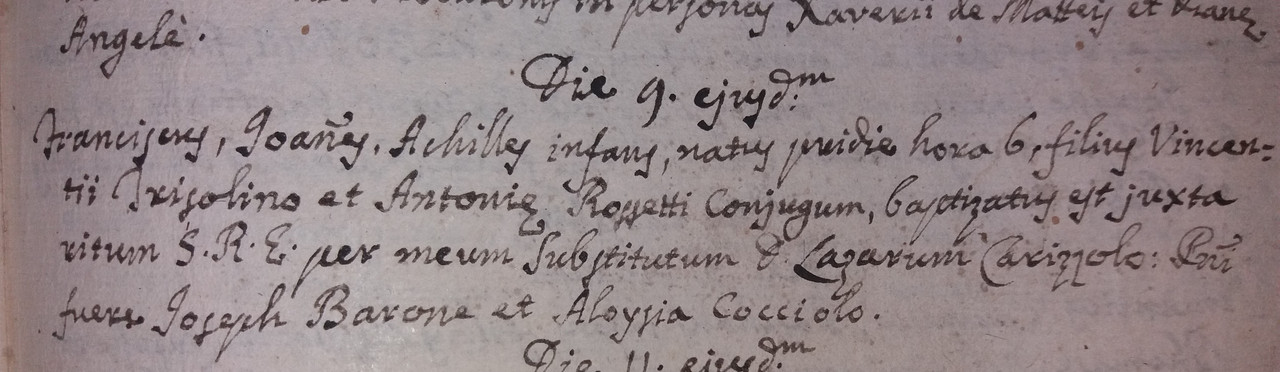 in personas Xaverii de Matteis et
Angelè.
Die 9. ejusd:m
Franciscus, Joañes, Achilles infans, natus pridie hora 6, filius Vincen=
tii Trisolino et Antonię Rossetti Conjugum, baptizatus est juxta
ritum S. R. E. per meum Substitutum D. Lazarum Carizzolo: Pnī
fuere Joseph Barone et Aloysia Cocciolo.
Die 11. ejusd:m